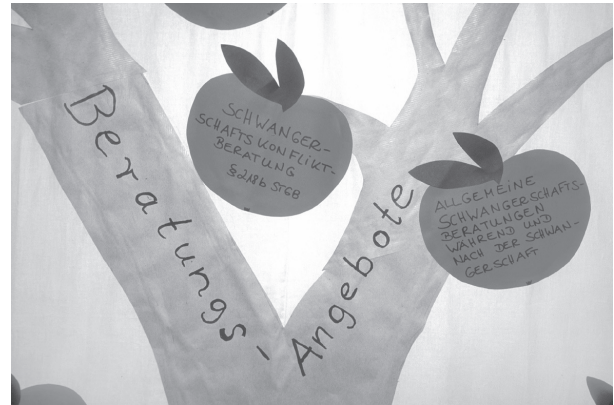 Beratungs-
Angebote
SCHWANGER-
SCHAFTSKONFLIKT-
BERATUNG
§ 218b STGB
ALLGEMEINE
SCHWANGERSCHAFTS-
BERATUNGEN
WÄHREND UND
NACH DER SCHWAN-
GERSCHAFT